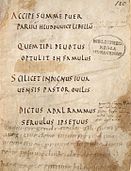 ACCIPE SUMME PUER
PARUU HLUDOUUICE LIBELLU
QUEM TIBI DEUOTUS
OPTULIT EN FAMULUS
SCILICET INDIGNUS IUUA
UENSIS PASTOR OUILIS
DICTUS ADALRAMMUS
SERUULUS IPSE TUUS
BIBLIOTHECA
REGIA
MONACENSIS